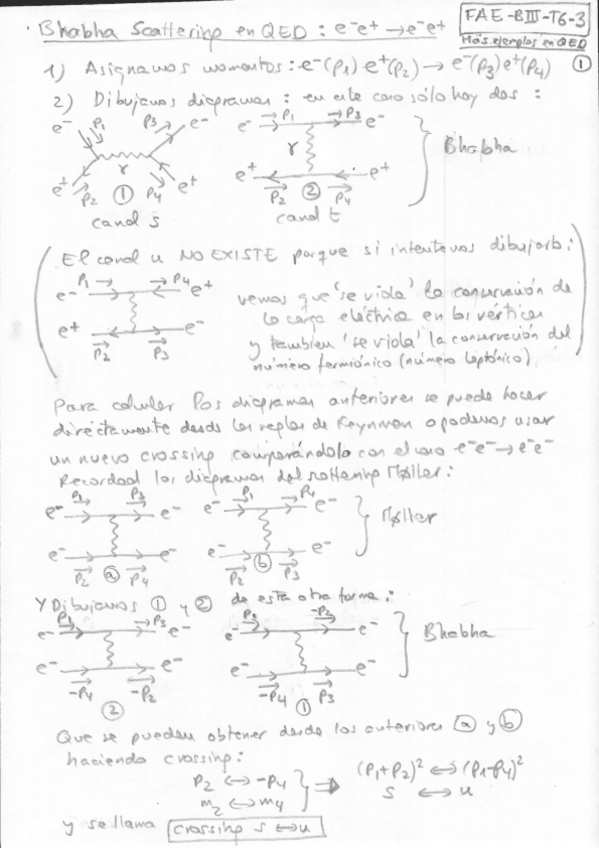 · Bhabha Scattering en QED : e⁻e⁺ → e⁻e⁺
FAE-BIII-T6-3
Más ejemplos en QED
①
1) Asignamos momentos : e⁻(p₁) e⁺(p₂) → e⁻(p₃) e⁺(p₄)
2) Dibujamos diagramas : en este caso sólo hay dos :
e⁻ p₁ p₃ e⁻ e⁻ p₁ p₃ e⁻
γ γ Bhabha
e⁺ p₂ ① p₄ e⁺ e⁺ p₂ ② p₄ e⁺
canal s canal t
El canal u NO EXISTE porque si intentamos dibujarlo :
e⁻ p₁ p₄ e⁺
e⁺ p₂ p₃ e⁻
vemos que 'se viola' la conservación de
la carga eléctrica en los vértices
y también 'se viola' la conservación del
número fermiónico (número leptónico)
Para calcular los diagramas anteriores se puede hacer
directamente desde las reglas de Feynman o podemos usar
un nuevo crossing comparándolo con el caso e⁻e⁻ → e⁻e⁻
Recordad los diagramas del scattering Møller :
e⁻ p₁ p₃ e⁻ e⁻ p₁ p₄ e⁻
Møller
e⁻ p₂ ⓐ p₄ e⁻ e⁻ p₂ ⓑ p₃ e⁻
Y Dibujamos ① y ② de esta otra forma :
e⁻ p₁ p₃ e⁻ e⁻ p₁ -p₂ e⁻
Bhabha
e⁻ -p₄ -p₂ e⁻ e⁻ -p₄ p₃ e⁻
② ①
Que se pueden obtener desde los anteriores ⓐ y ⓑ
haciendo crossing :
p₂ ↔ -p₄ ⇒ (p₁+p₂)² ↔ (p₁-p₄)²
m₂ ↔ m₄ s ↔ u
y se llama crossing s ↔ u